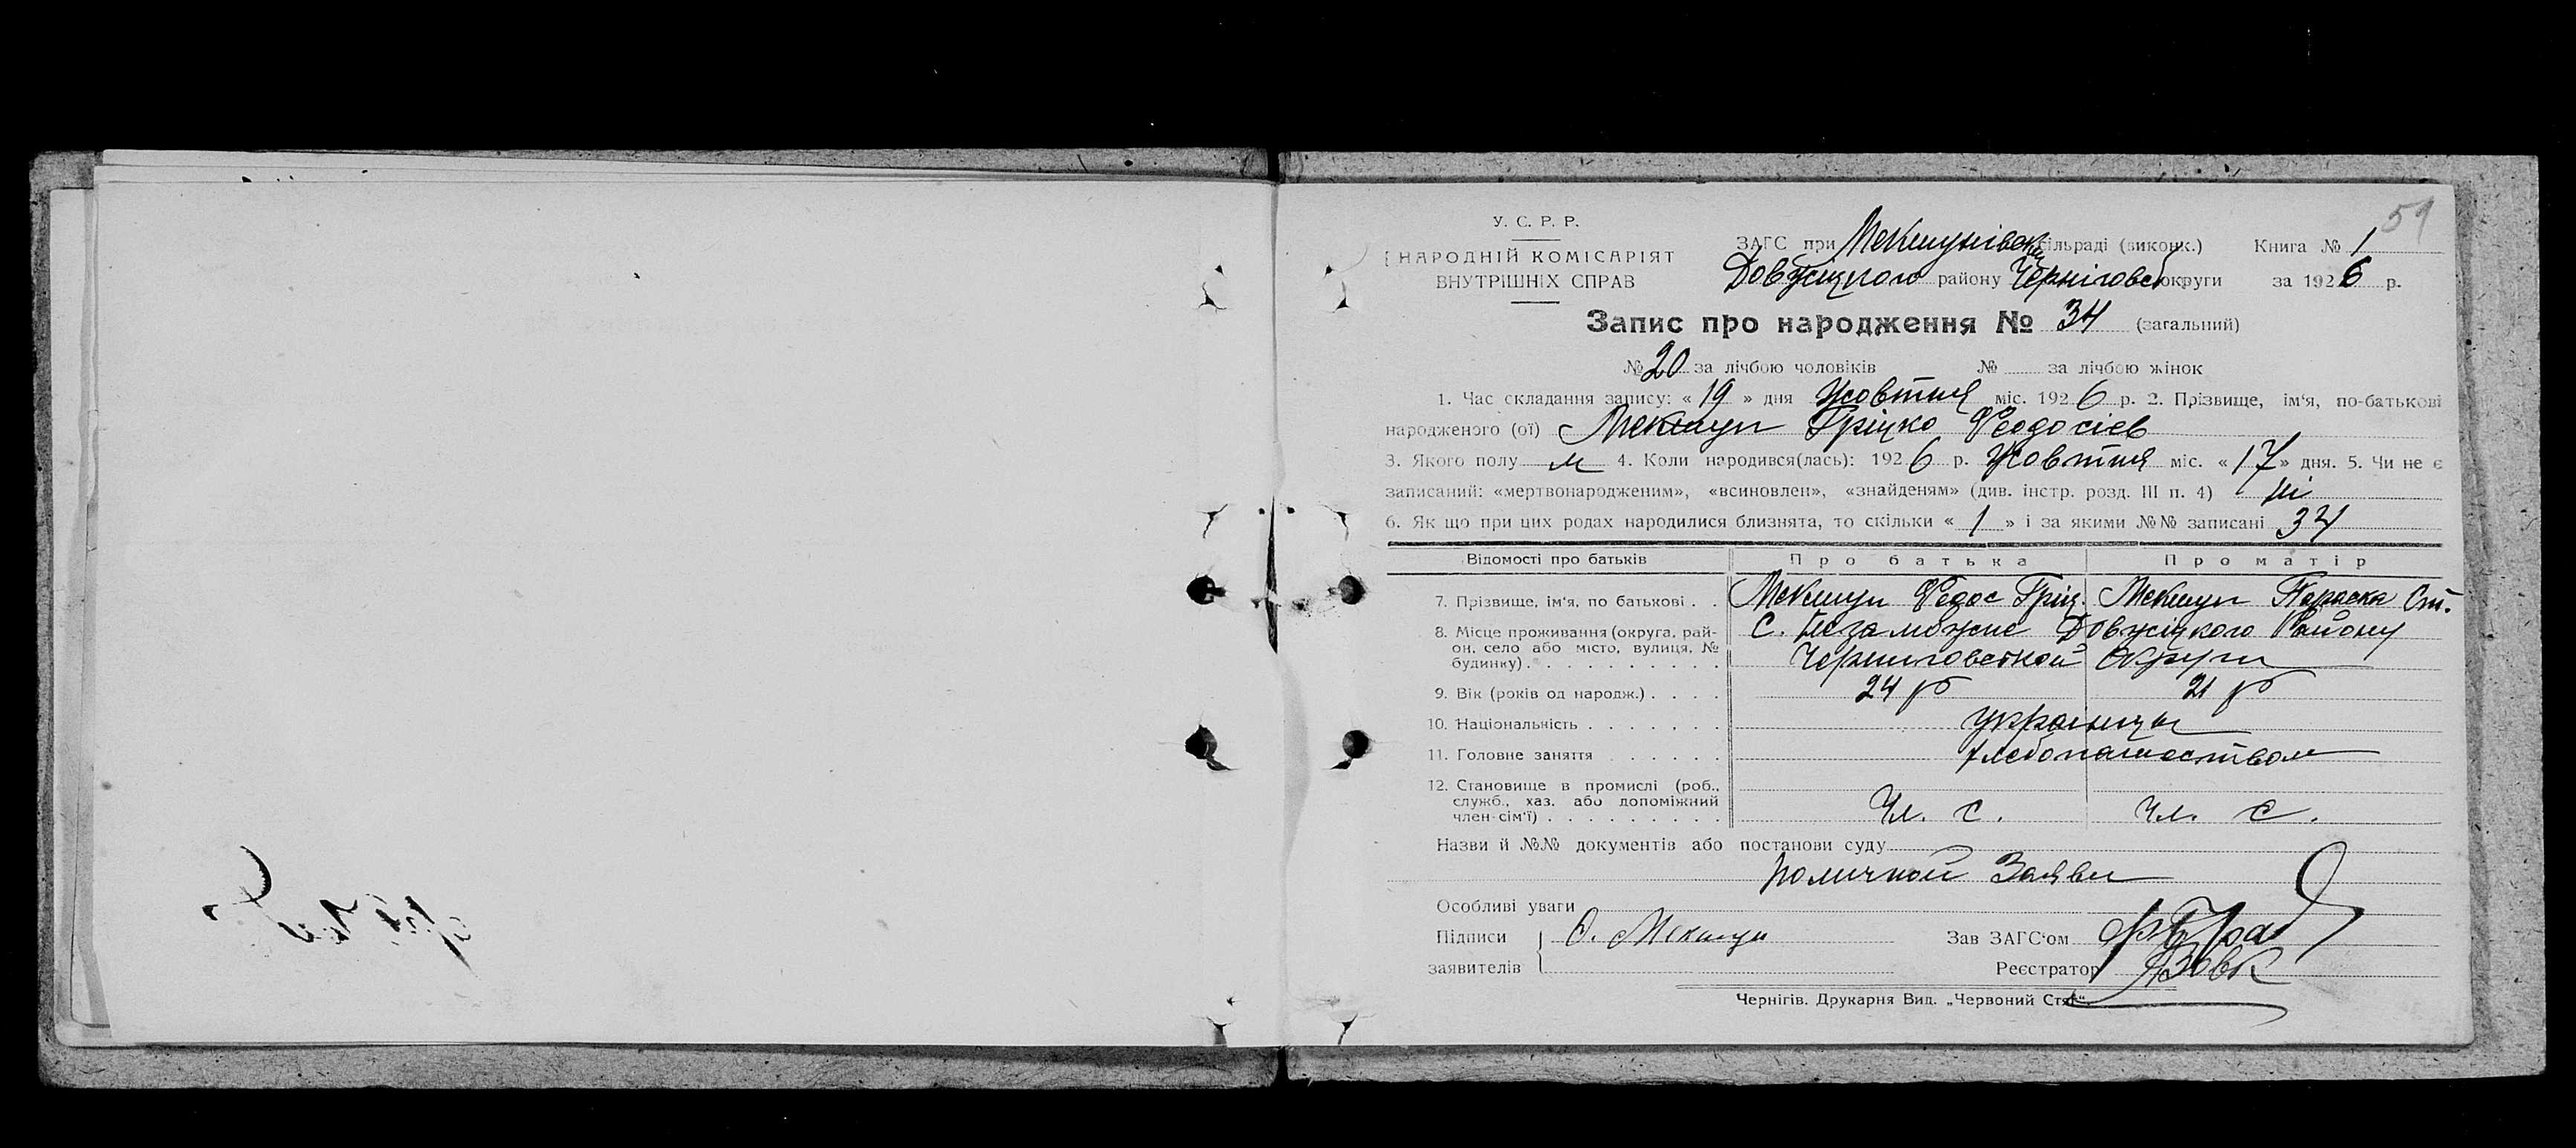 51
У. С. Р. Р.
НАРОДНІЙ КОМІСАРІЯТ
ВНУТРІШНІХ СПРАВ
ЗАГС при Мекшунівській сільраді (виконк.) Книга № 1
Довжицького району Чернігівської округи за 1926 р.
Запис про народження № 34 (загальний)
№ 20 за лічбою чоловіків № за лічбою жінок
1. Час складання запису: « 19 » дня Жовтня міс. 1926 р. 2. Прізвище, ім'я, по-батькові
народженого (ої) Мекшун Гріцко Феодосієв
3. Якого полу м 4. Коли народився(лась): 1926 р. Жовтня міс. «17» дня. 5. Чи не є
записаний: «мертвонародженим», «всиновлен», «знайденям» (див. інстр. розд. III п. 4) ні
6. Як що при цих родах народилися близнята, то скільки « 1 » і за якими №№ записані 34
Відомості про батьків Про батька Про матір
7. Прізвище, ім'я, по батькові . . Мекшун Федос Гріц. Мекшун Параска Ст.
8. Місце проживання (округа, рай-
он, село або місто, вулиця, №
будинку) . . . . . . . . . С. Незаможне Довжіцкого Району
Черниговской Округи
9. Вік (років од народж.) . . . . 24 р 21 р
10. Національність . . . . . . . украинцы
11. Головне заняття . . . . . . хлебопашеством
12. Становище в промислі (роб.,
служб., хаз. або допоміжний
член-сім'ї) . . . . . . . . . Чл. с. Чл. с.
Назви й №№ документів або постанови суду
Заяви
Особливі уваги
Підписи
заявителів
Мекшун
Зав ЗАГС'ом
Реєстратор Вовк
Чернігів. Друкарня Вид. „Червоний Стяг“.